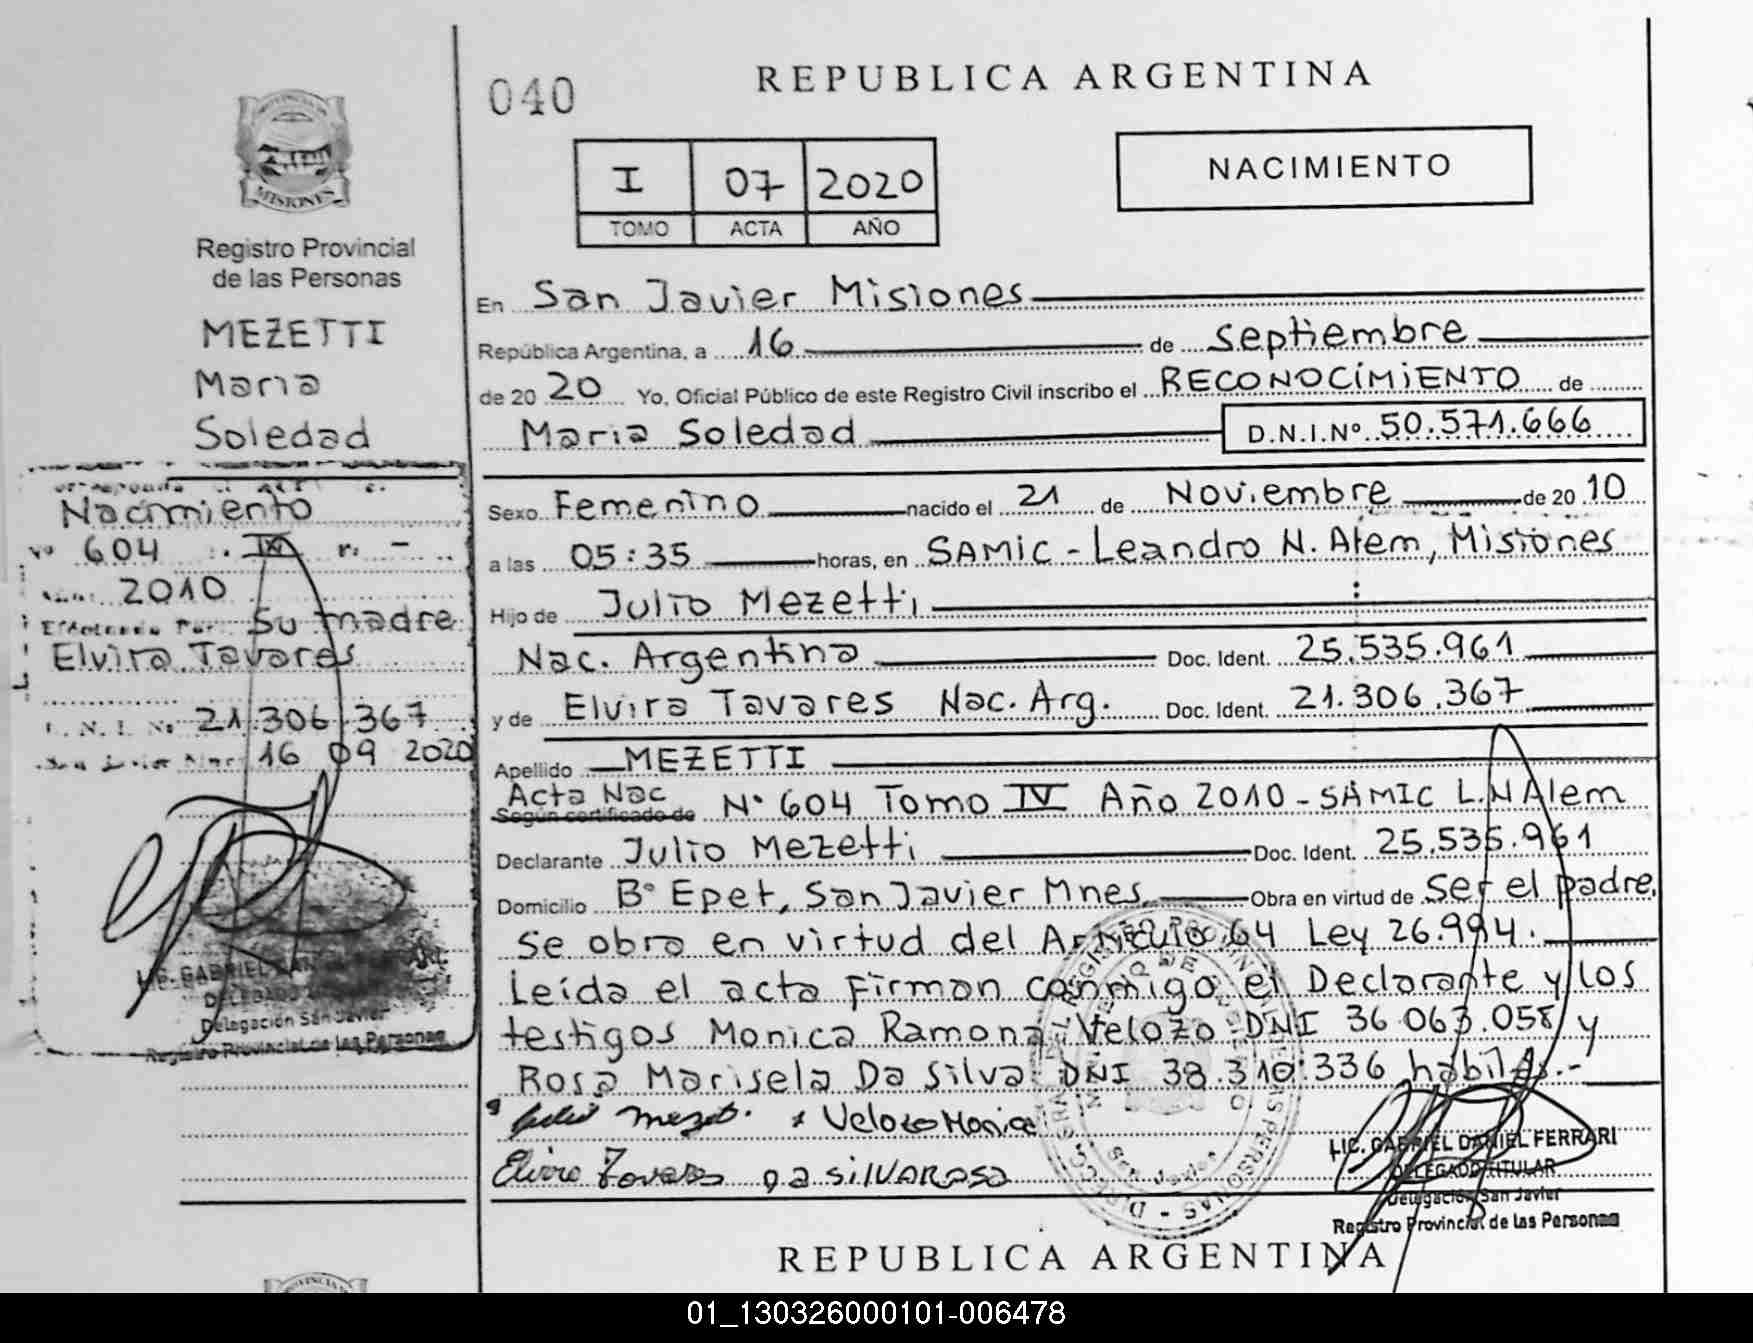 040
REPUBLICA ARGENTINA
I 07 2020
TOMO ACTA AÑO
NACIMIENTO
MISIONES
Registro Provincial
de las Personas
MEZETTI
Maria
Soledad
Nacimiento
No 604 IV
2010
Efectuado Por: Su madre
Elvira Tavares
D. N. I. No 21.306.367
San Javier Mnes. 16 09 2020
LIC. GABRIEL DANIEL FERRARI
DELEGADO
Delegación San Javier
Registro Provincial de las Personas
En San Javier Misiones
República Argentina, a 16 de septiembre
de 20 20 Yo, Oficial Público de este Registro Civil inscribo el RECONOCIMIENTO de
Maria Soledad D.N.I.Nº 50.571.666
Sexo Femenino nacido el 21 de Noviembre de 20 10
a las 05:35 horas, en SAMIC - Leandro N. Alem, Misiones
Hijo de Julio Mezetti
Nac. Argentina Doc. Ident. 25.535.961
y de Elvira Tavares Nac. Arg. Doc. Ident. 21.306.367
Apellido MEZETTI
Acta Nac
Según certificado de Nº 604 Tomo IV Año 2010 - SAMIC L.N Alem
Declarante Julio Mezetti Doc. Ident. 25.535.961
Domicilio Bº Epet, San Javier Mnes. Obra en virtud de ser el padre.
Se obra en virtud del Articulo 64 Ley 26.994.
Leída el acta Firman conmigo el Declarante y los
testigos Monica Ramona Velozo DNI 36.063.058 y
Rosa Marisela Da Silva DNI 38.310.336 habiles.-
Julio Mezeti x Velozo Monica
Elvira Tavares DA SILVA ROSA
LIC. GABRIEL DANIEL FERRARI
DELEGADO TITULAR
Delegación San Javier
Registro Provincial de las Personas
REPUBLICA ARGENTINA
01_130326000101-006478